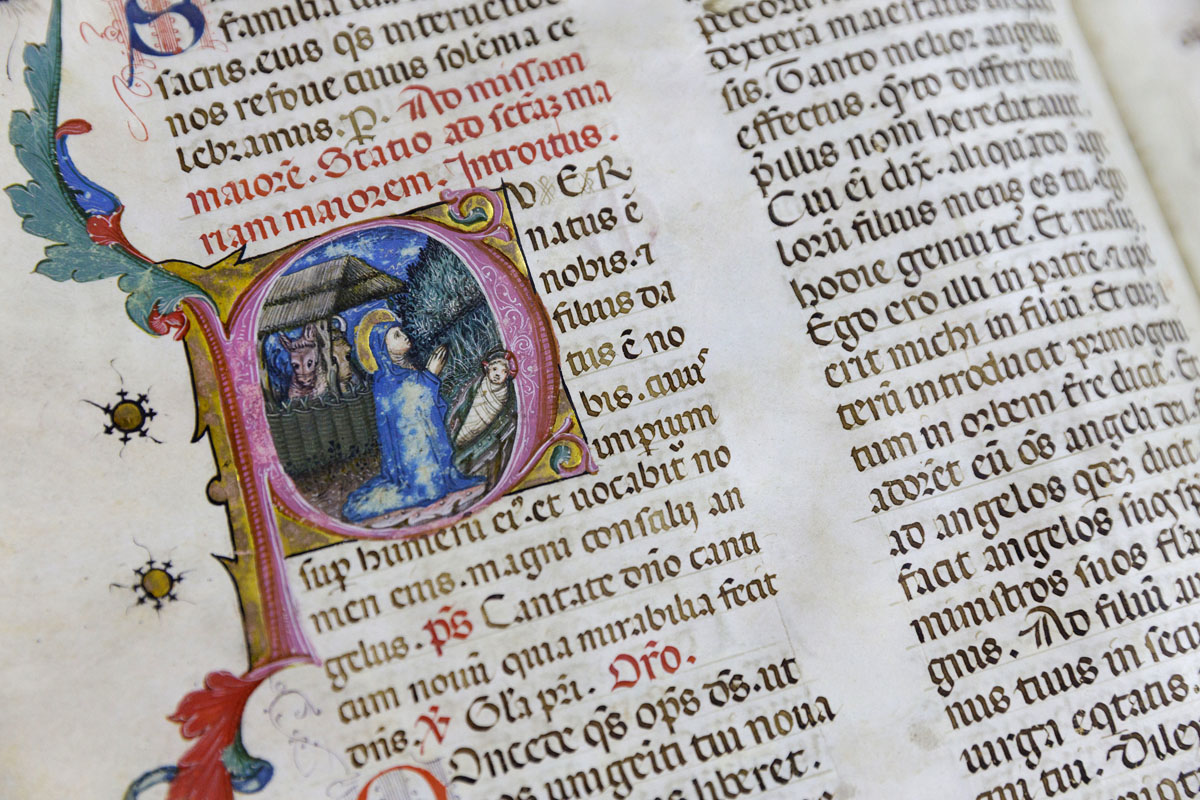 familia
sacris. eius q̄s
nos refoue cuius solēnia ce
lebramus. P. Ad missam
maiorē. Statio ad sc̄az ma
riam maiorem. Introitus.
PVER
natus ē
nobis. ⁊
filius da
tus ē no
bis. cuiꝰ
impium
sup humerū eiꝰ. et uocabit̄ no
men eius. magni consilij an
gelus. p̄s Cantate dn̄o canti
cum nouū quia mirabilia fecit
dn̄s. ℣ Gl̄a pri. Or̄o.
Concede q̄s op̄s d̄s. ut
unigēiti tui noua
liberet.
dexterā maiestatis
sis. Tanto melior angelis
effectus. q̄to differenti
p̄ illis nom̄ hereditauit.
Cui eī dix̄. aliquādo āge
lorū filius meus es tu. ego
hodie genui te. Et rursū.
Ego ero illi in patrē. ⁊ ipe
erit michi in filiū. Et cuz ⁊
terū introducit primogen
tum in orbem t̄re dicit. Et
adorēt eū ōs angeli dei.
ad angelos q̄dez dicit
facit angelos suos
ministros suos flā
gnis. Ad filiū au
nus tuus in secl
uirga eq̄tatis.
gni tui.